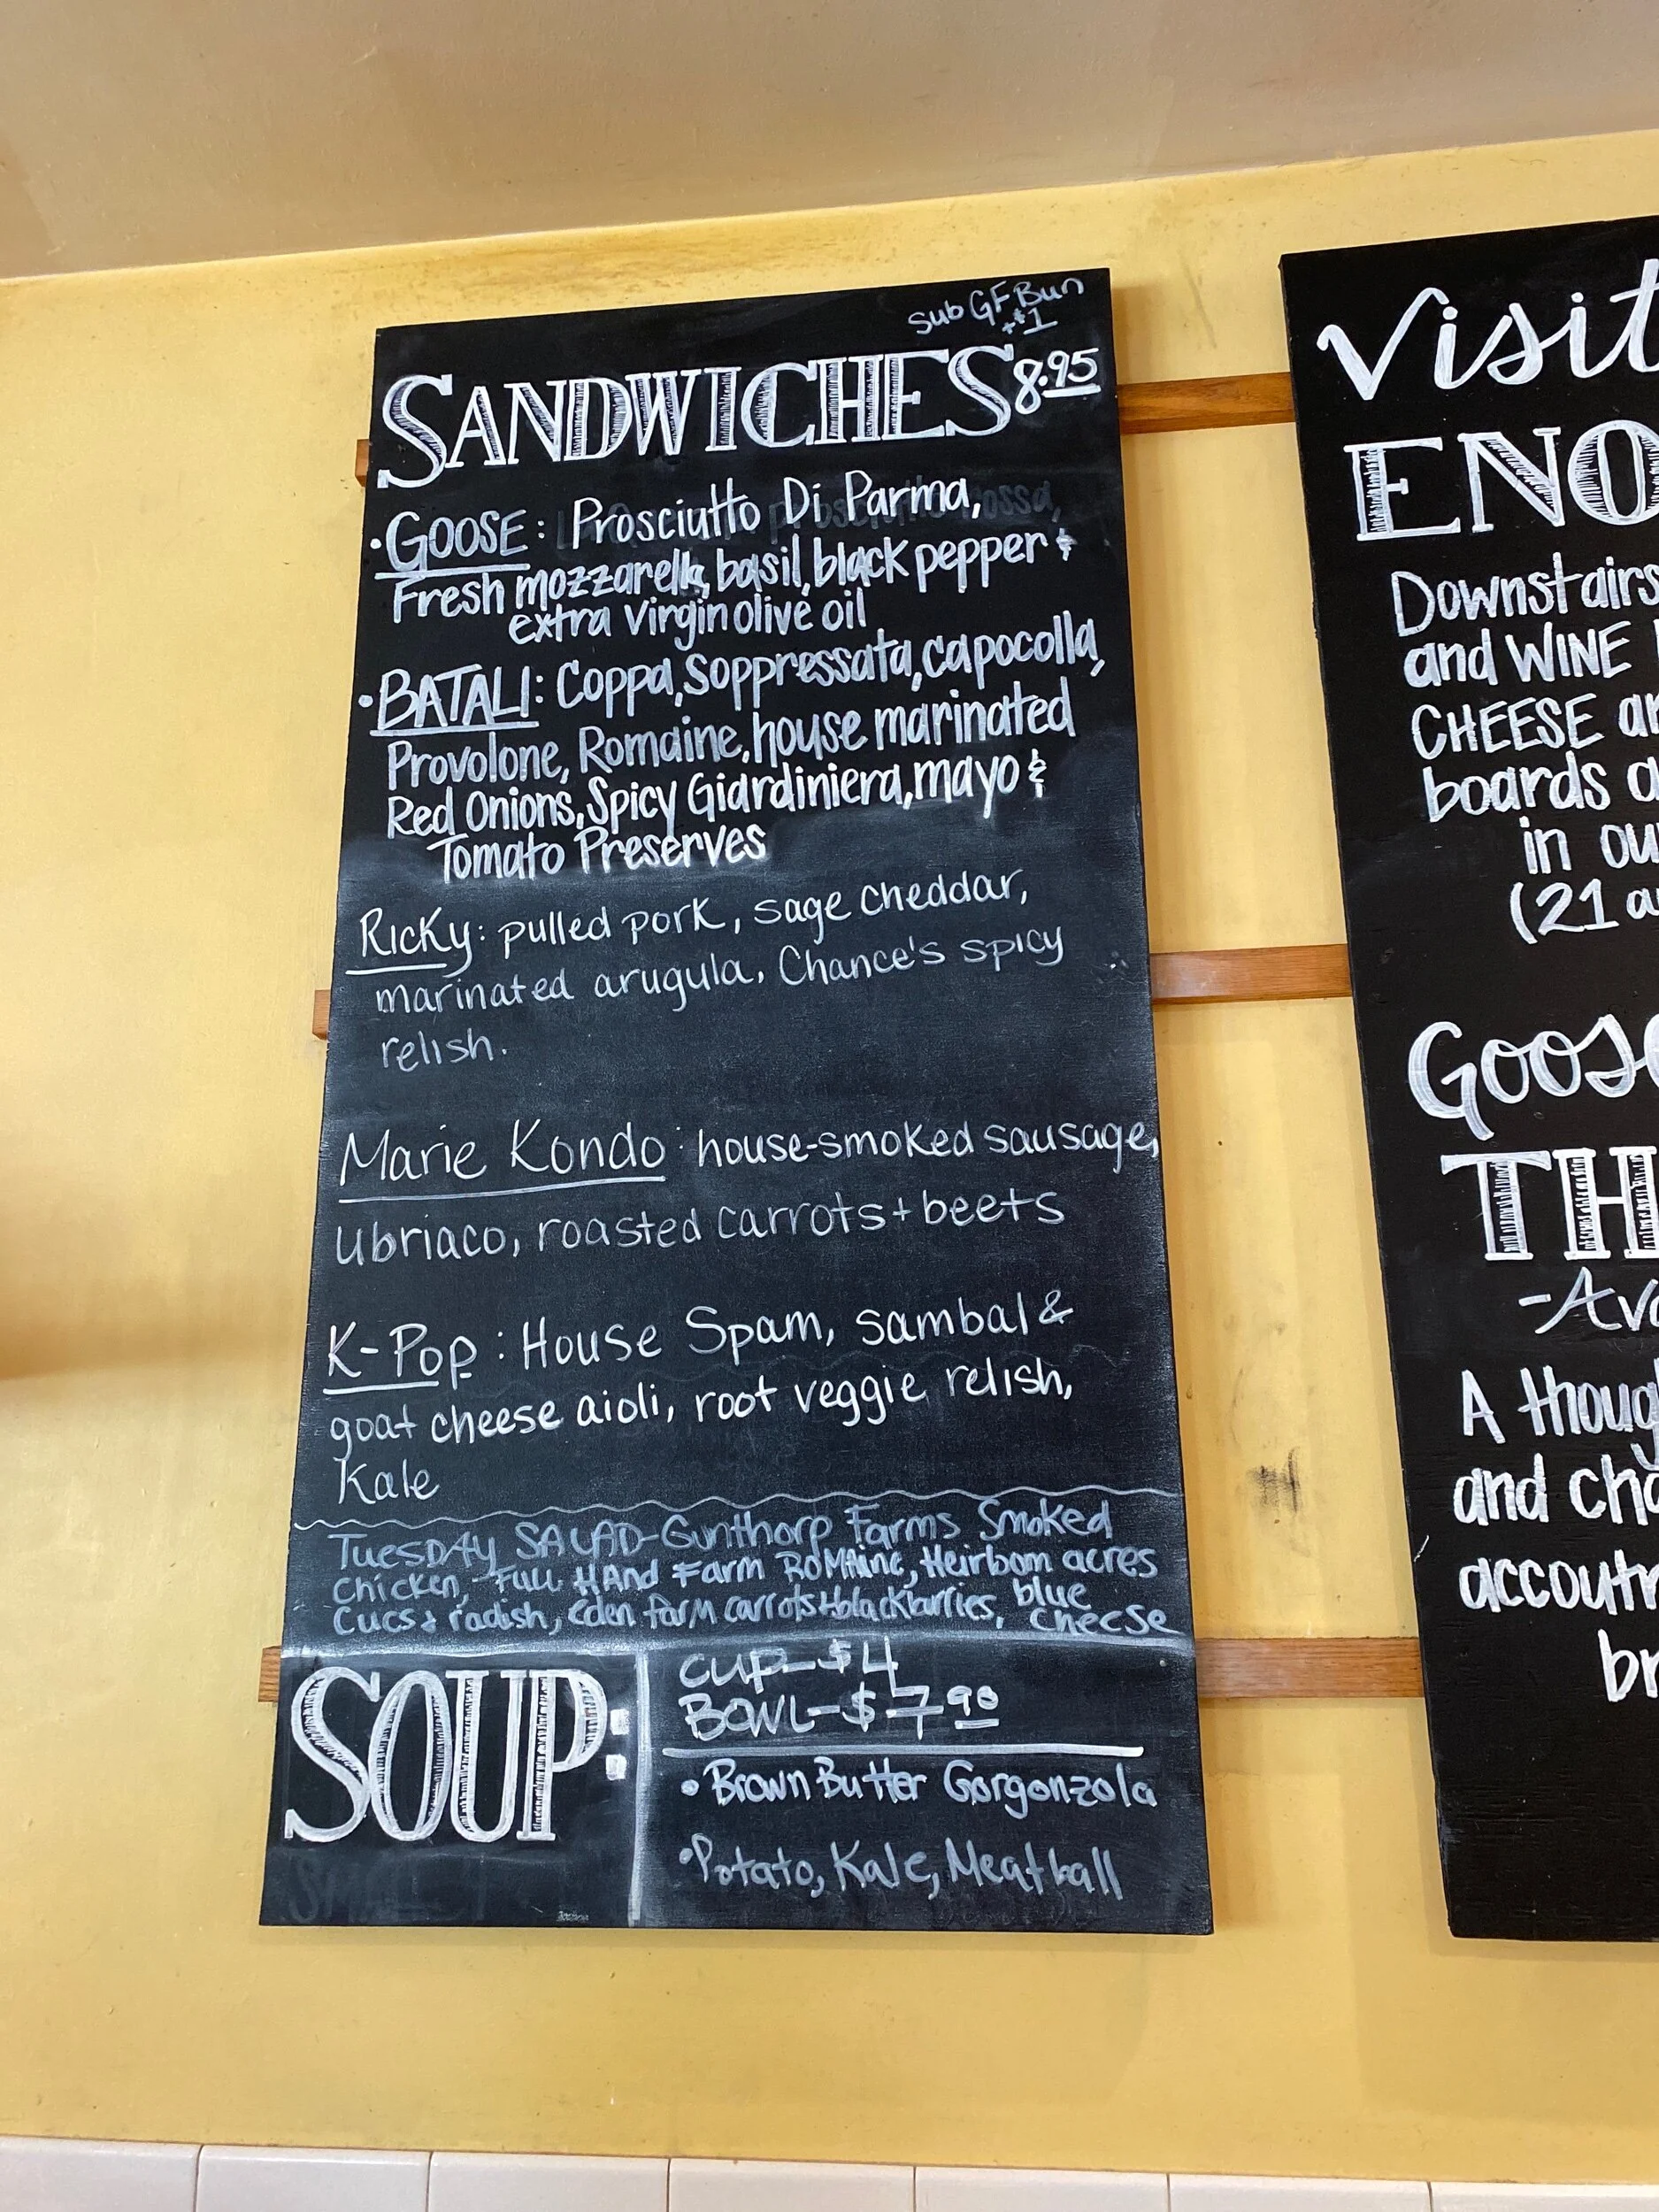 Sub GF Bun
+$1
SANDWICHES 8.95
• GOOSE: Prosciutto Di Parma,
Fresh mozzarella, basil, black pepper &
extra virgin olive oil
• BATALI: Coppa, Soppressata, capocolla,
Provolone, Romaine, house marinated
Red Onions, Spicy Giardiniera, mayo &
Tomato Preserves
Ricky: pulled pork, sage cheddar,
marinated arugula, Chance's spicy
relish.
Marie Kondo: house-smoked sausage,
ubriaco, roasted carrots + beets
K-Pop: House Spam, sambal &
goat cheese aioli, root veggie relish,
Kale
TUESDAY SALAD-Gunthorp Farms Smoked
Chicken, Full HAnd Farm ROMAine, Heirloom acres
Cucs & radish, Eden farm carrots + blackburries, blue
cheese
SOUP:
CUP-$4
BOWL-$7.90
• Brown Butter Gorgonzola
• Potato, Kale, Meatball
Visit
ENO
Downstairs
and WINE
CHEESE
boards
in
(21
Goose
TH
A
and